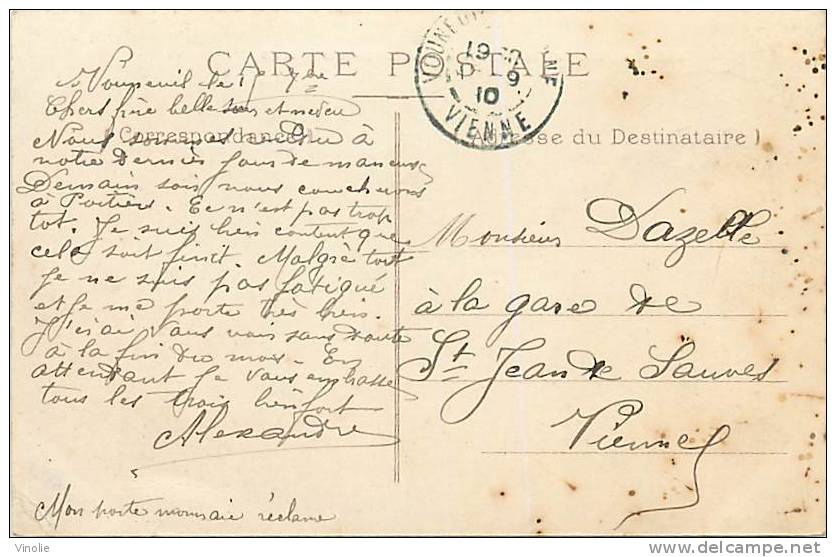 CARTE POSTALE
Vouneuil le 17 7bre
Chers frère belle sœur et neveu
(Correspondance)
Nous sommes rendu à
notre dernier jour de manœuv
Demain soir nous coucherons
à Poitiers. Ce n'est pas trop
tot. Je suis bien content que
cela soit finit Malgrè tout
Je ne suis pas fatigué
et Je me porte très bien.
J'irai vous voir sans doute
à la fin du mois. En
attendant Je vous embrasse
tous les trois bien fort
Alexandre
Mon porte monnaie réclame
VOUNEUIL
19
9
10
VIENNE
(Adresse du Destinataire)
Monsieur Dazelle
à la gare de
St Jean de Sauves
Vienne
Vinolie
http://www.delcampe.net